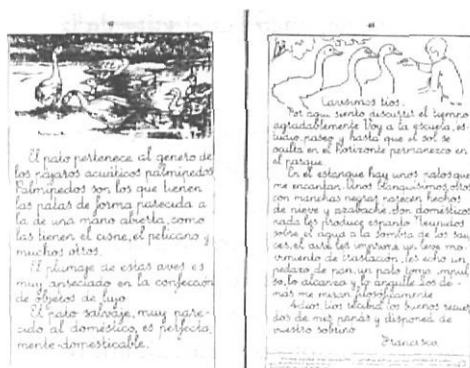 El pato pertenece al género de
los pájaros acuáticos palmípedos
Palmípedos son los que tienen
las patas de forma parecida a
la de una mano abierta, como
las tienen el cisne, el pelícano y
muchos otros.
El plumaje de estas aves es
muy apreciado en la confección
de objetos de lujo
El pato salvaje, muy pare-
cido al doméstico, es perfecta
mente domesticable.
Carísimos tíos.
Por aquí siento discurrir el tiempo
agradablemente Voy a la escuela, es-
tudio, paseo y hasta que el sol se
oculta en el horizonte permanezco en
el parque.
En el estanque hay unos patos que
me encantan. Unos blanquísimos, otros
con manchas negras parecen hechos
de nieve y azabache. Son domésticos
nada les produce espanto Reunidos
sobre el agua a la sombra de los sau
ces, el aire les imprime un leve mo-
vimiento de traslación, les echo un
pedazo de pan, un pato toma impul
so, lo alcanza y lo engulle los de-
más me miran filosóficamente
Adiós tíos reciban los buenos recuer
dos de mis papás y disponed de
vuestro sobrino
Francisco